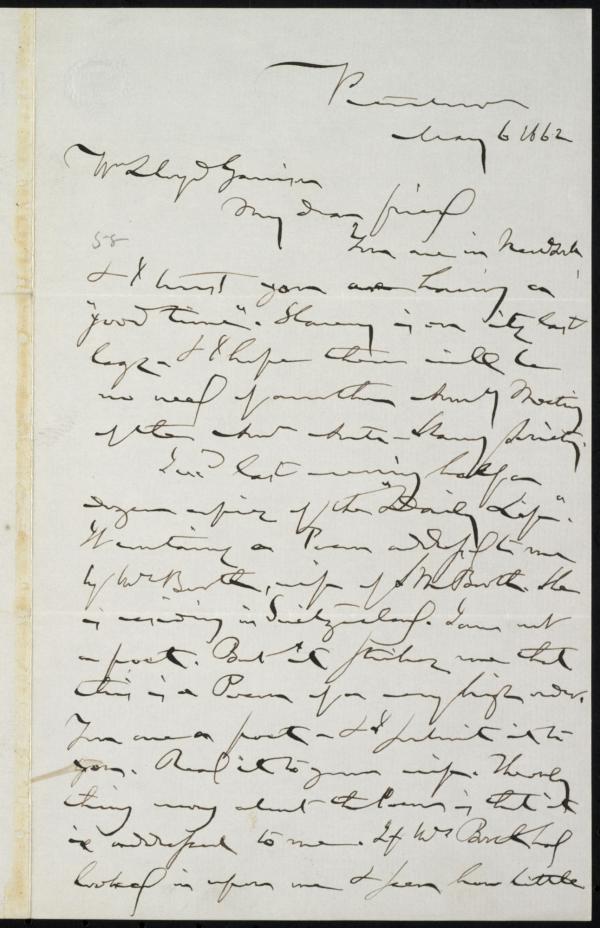 Peterboro
May 6 1862
Wm Lloyd Garrison
My dear friend
58
You are in New York
& I trust you are having a
"good time". Slavery is on its last
legs - & I hope there will be
no need of another Ann'l Meeting
of the Am' Anti-Slavery Society.
I rec'd last evening half a
dozen copies of the "Daily Life".
It contains a Poem addressed to me
by Mrs Booth, wife of S M Booth. She
is residing in Switzerland. I am not
a poet. But it strikes me that
this is a Poem of a very high order.
You are a poet - & I submit it to
you. Read it to your wife. The only
thing wrong about the Poem is that it
is addressed to me. If Mrs Booth had
looked in upon me & seen how little